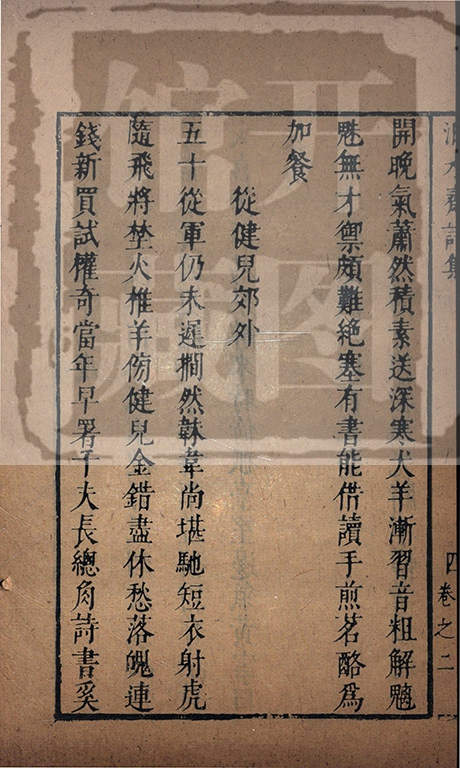 水齋詩集
四 卷之二
開晚氣蕭然積素送深寒犬羊漸習音粗解魑
魅無才禦頗難絕塞有書能借讀手煎茗酪爲
加餐
從健兒郊外
五十從軍仍未遲撊然韎韋尚堪馳短衣射虎
隨飛將埜火椎羊傍健兒金錯盡休愁落魄連
錢新買試權奇當年早署千夫長總角詩書奚
开图
馆藏